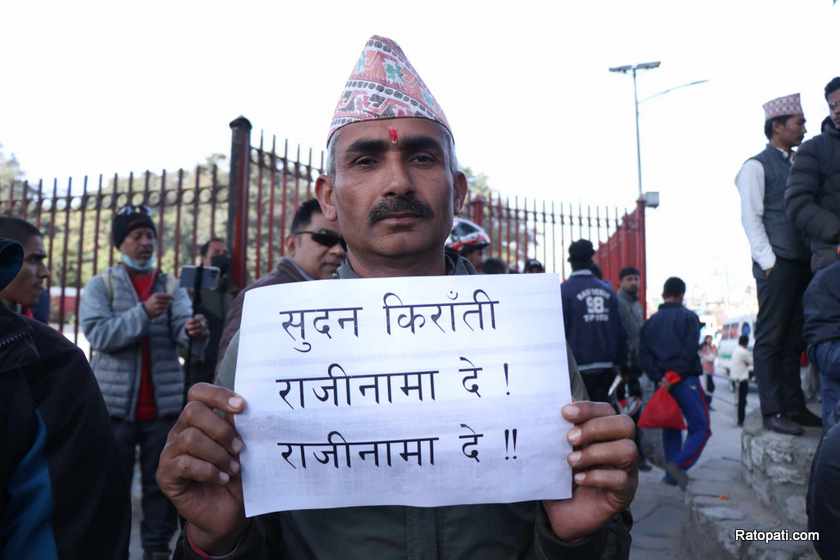 सुदन किराँती
राजीनामा दे !
राजीनामा दे !!
98
Ratopati.com